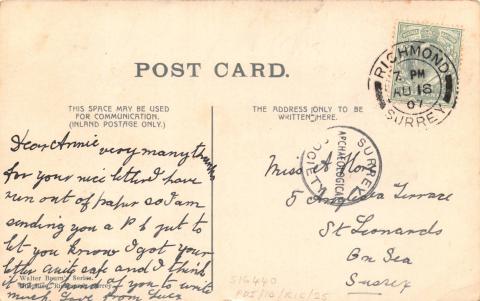 POST CARD.
THIS SPACE MAY BE USED
FOR COMMUNICATION.
(INLAND POSTAGE ONLY.)
THE ADDRESS ONLY TO BE
WRITTEN HERE.
RICHMOND
7. PM
AU 18
07
SURREY
Dear Annie very many thanks
for your nice letter I have
run out of paper so I am
sending you a P C just to
let you know I got your
letter quite safe and I think
it kind of you to write
much Love from
Walter Series.
SURREY
ARCHAEOLOGICAL
SOCIETY
Miss A
5 Terrace
St Leonards
On Sea
Sussex